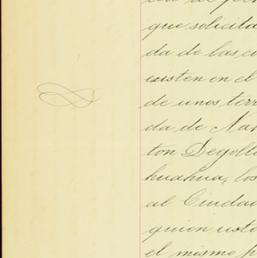 que solicita
da de las co
existen en el
de unos terr
da de Nar
ton Degolla
huahua, los
al Ciudad
quien usto
el mismo p